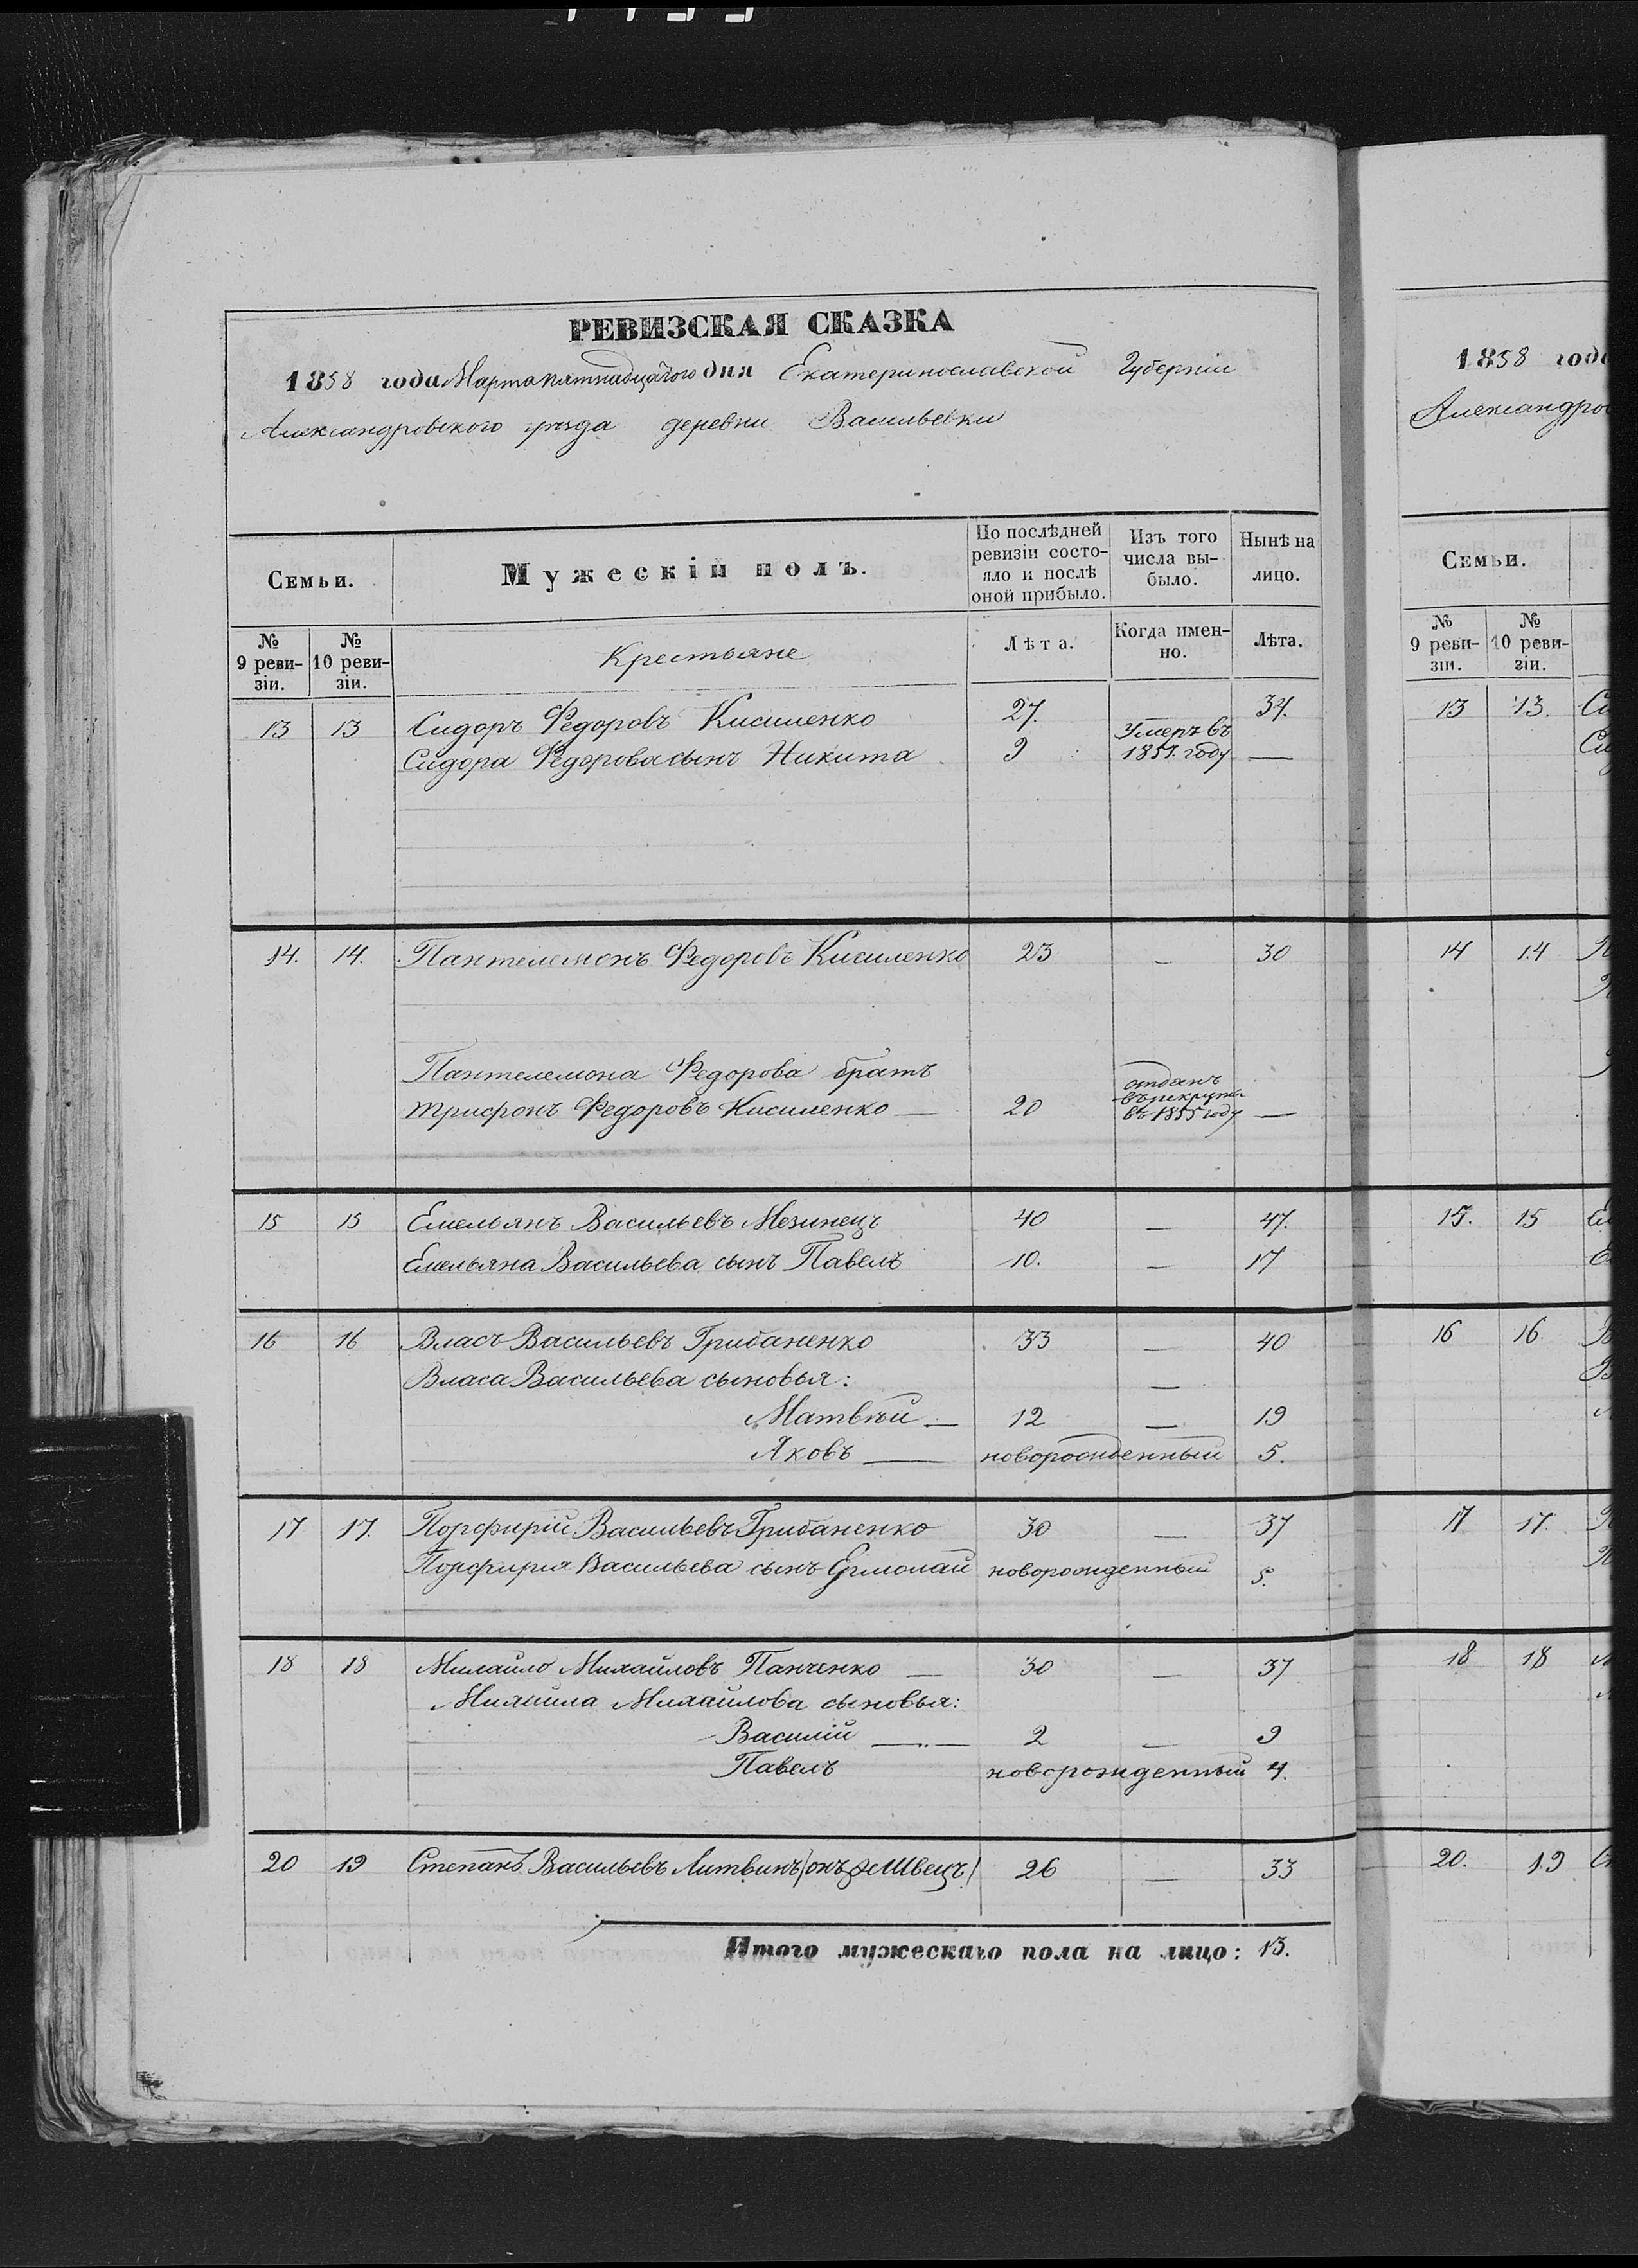 РЕВИЗСКАЯ СКАЗКА
1858 года Марта пятнадцатого дня Екатеринославской Губерніи
Александровского уѣзда деревни Васильевки
Семьи.
Мужескій полъ.
По послѣдней ревизіи состояло и послѣ оной прибыло.
Изъ того числа выбыло.
Нынѣ на лицо.
№ 9 ревизіи.
№ 10 ревизіи.
Крестьяне
Лѣта.
Когда именно.
Лѣта.
13 13 Сидоръ Федоровъ Кисиленко 27. 34.
Сидора Федорова сынъ Никита 9 Умеръ въ 1851. году —
14. 14. Пантелемонъ Федоровъ Кисиленко 23 — 30
Пантелемона Федорова братъ
Трифонъ Федоровъ Кисиленко — 20 отданъ въ рекруты въ 1855 году —
15 15 Емельянъ Васильевъ Мезинецъ 40 — 47.
Емельяна Васильева сынъ Павелъ 10. — 17
16 16 Власъ Васильевъ Грибаненко 33 — 40
Власа Васильева сыновья: —
Матвѣй — 12 — 19
Яковъ — новорожденный 5.
17 17. Порфирій Васильевъ Грибаненко 30 — 37
Порфирия Васильева сынъ Ермолай новорожденный 5.
18 18 Михайло Михайловъ Панченко — 30 — 37
Михаила Михайлова сыновья:
Василій — 2 — 9
Павелъ новорожденный 4.
20 19 Степанъ Васильевъ Литвинъ /онъ же Швецъ/ 26 — 33
Итого мужескаго пола на лицо: 13.
1858 года
Александро
Семьи.
№ 9 ревизіи.
№ 10 ревизіи.
13 13. Си
Си
14 14
15. 15 Ем
16 16.
17 17.
18 18
20. 19